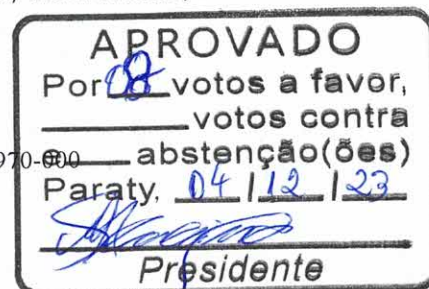 APROVADO
Por 08 votos a favor,
votos contra
970-000 e abstenção(ões)
Paraty, 04 / 12 / 23
Presidente